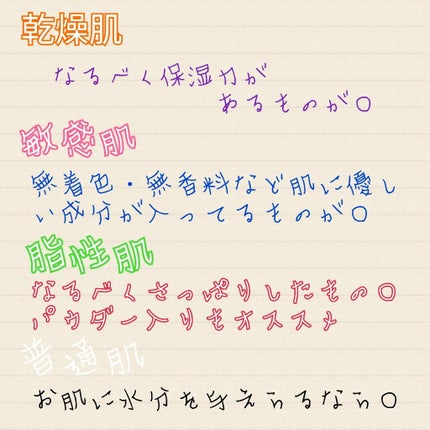 乾燥肌
なるべく保湿力が
あるものが○
敏感肌
無着色・無香料など肌に優し
い成分が入ってるものが○
脂性肌
なるべくさっぱりしたもの○
パウダー入りもオススメ
普通肌
お肌に水分を与えらるなら○